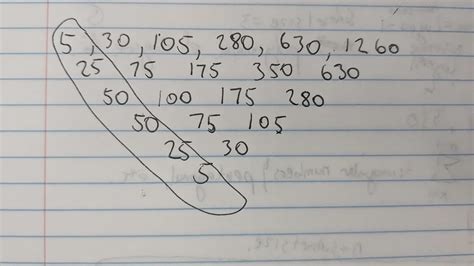 5, 30, 105, 280, 630, 1260
25 75 175 350 630
50 100 175 280
50 75 105
25 30
5